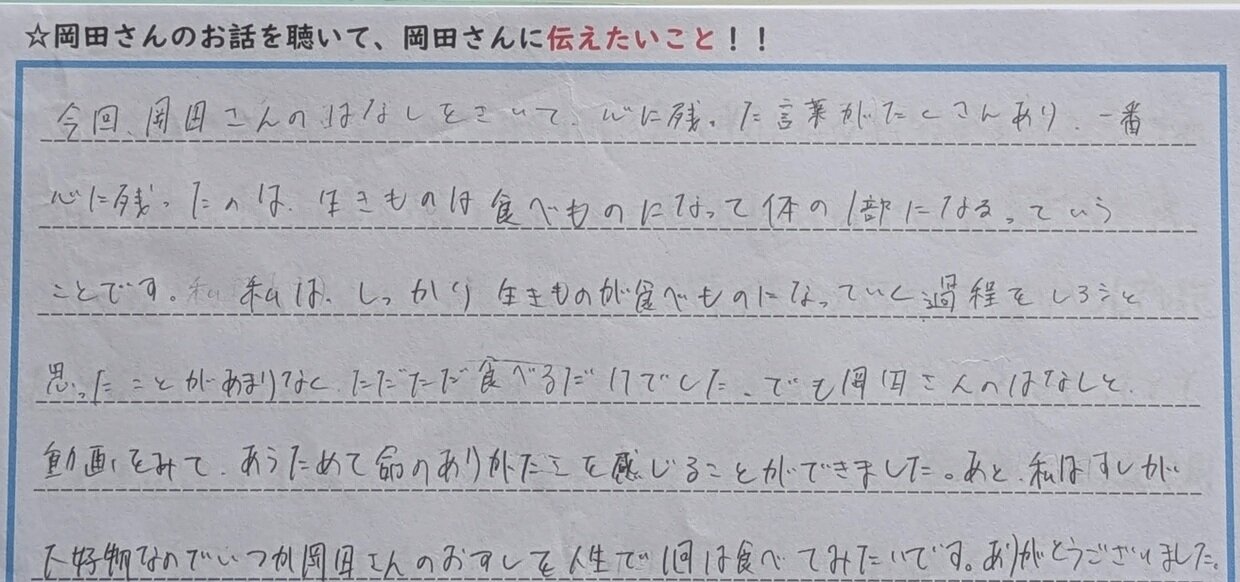 ☆岡田さんのお話を聴いて、岡田さんに伝えたいこと！！
今回、岡田さんのはなしをきいて、心に残った言葉がたくさんあり、一番
心に残ったのは、生きものは食べものになって体の1部になるっていう
ことです。私は、しっかり生きものが食べものになっていく過程をしろうと
思ったことがあまりなく、ただただ食べるだけでした。でも岡田さんのはなしと、
動画をみて、あらためて命のありがたさを感じることができました。あと、私はすしが
大好物なのでいつか岡田さんのおすしを人生で1回は食べてみたいです。ありがとうございました。